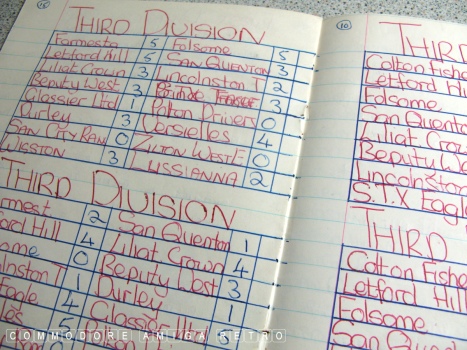 15
THIRD DIVISION
Farnesta 5 Folsome 5
Letford Hill 5 San Quenton 3
Zuliat Crown 3 Lincolnston T 2
Beputy West 3 3
Glossier Ltd 1 Polton Drivers 0
Durley 3 Versielles 4
San City Ran 0 Zilton West F 0
Weston 3 Lussianna 2
THIRD DIVISION
rnest 2 San Quenton 1
ord Hill 4 Zuliat Crown 4
ome 0 Beputy West 3
nston T 4 Durley 1
1
COMMODORE AMIGA RETRO
16
THIRD
Colton Fishe
Letford Hill
Folsome
San Quento
Zuliat Crow
Beputy We
Lincolnston
S.T.X Eagl
THIRD
Colton Fishe
Letford Hill
Folsome
San Qued